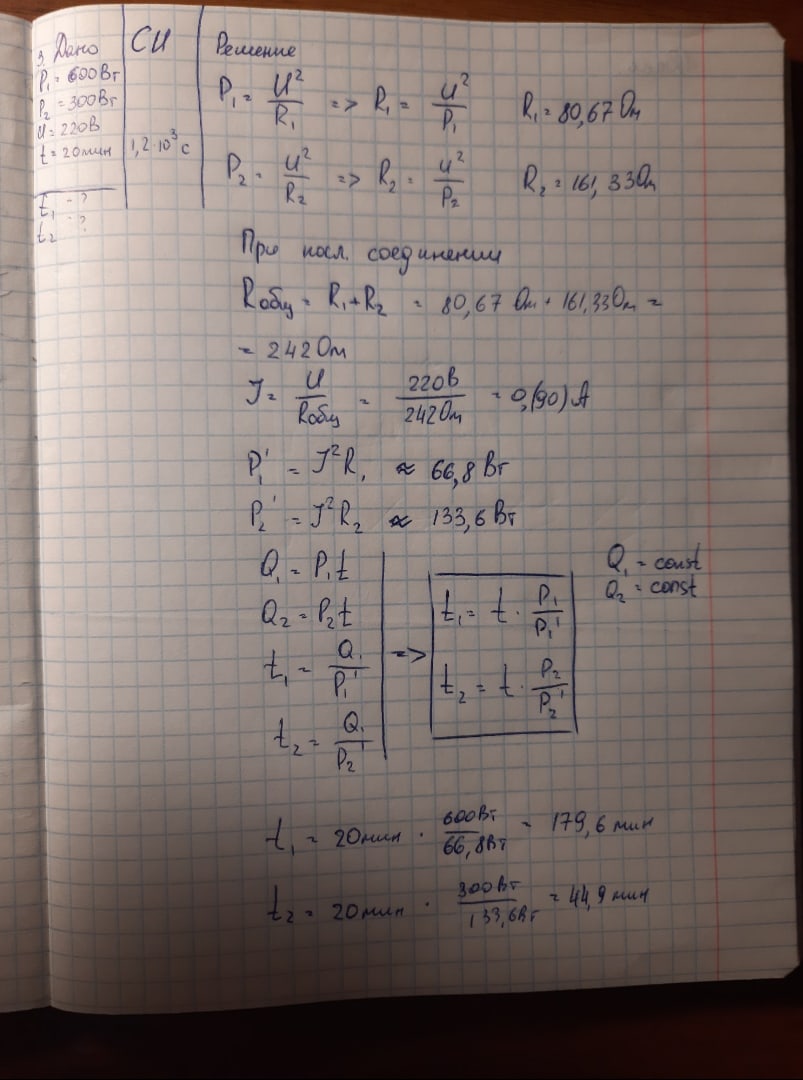 3. Дано
P₁ = 600Вт
P₂ = 300Вт
U = 220В
t = 20мин
t₁ - ?
t₂ - ?
СИ
1,2·10³ с
Решение
P₁ = U²/R₁ => R₁ = U²/P₁ R₁ = 80,67 Ом
P₂ = U²/R₂ => R₂ = U²/P₂ R₂ = 161,33Ом
При посл. соединении
Rобщ = R₁+R₂ = 80,67 Ом + 161,33Ом =
= 242Ом
J = U/Rобщ = 220В/242Ом = 0,(90)А
P₁' = J²R₁ ≈ 66,8 Вт
P₂' = J²R₂ ≈ 133,6 Вт
Q₁ = P₁t
Q₂ = P₂t
t₁ = Q₁/P₁'
t₂ = Q₁/P₂'
=>
t₁ = t · P₁/P₁'
t₂ = t · P₂/P₂'
Q₁ = const
Q₂ = const
t₁ = 20мин · 600Вт/66,8Вт = 179,6 мин
t₂ = 20мин · 300Вт/133,6Вт = 44,9 мин